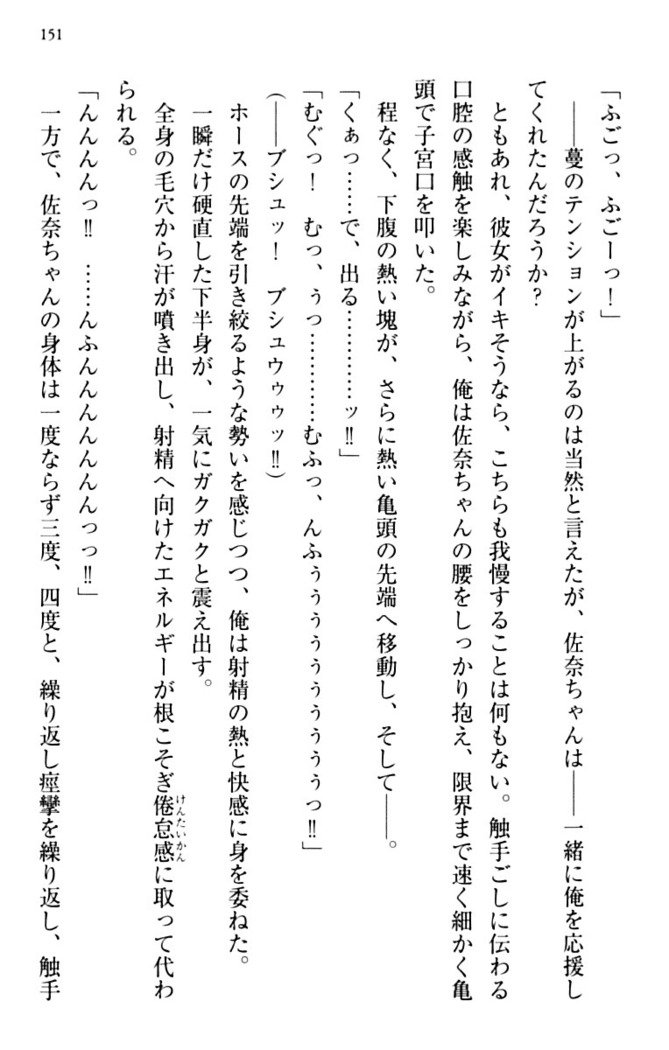 151
「ふごっ、ふごーっ！」
――蔓のテンションが上がるのは当然と言えたが、佐奈ちゃんは――一緒に俺を応援し
てくれたんだろうか？
ともあれ、彼女がイキそうなら、こちらも我慢することは何もない。触手ごしに伝わる
口腔の感触を楽しみながら、俺は佐奈ちゃんの腰をしっかり抱え、限界まで速く細かく亀
頭で子宮口を叩いた。
程なく、下腹の熱い塊が、さらに熱い亀頭の先端へ移動し、そして――。
「くぁっ……で、出る…………ッ‼」
「むぐっ！　むっ、ぅっ…………むふっ、んふぅぅぅぅぅぅぅぅぅっ‼」
（――ブシュッ！　ブシュウゥゥッ‼）
ホースの先端を引き絞るような勢いを感じつつ、俺は射精の熱と快感に身を委ねた。
一瞬だけ硬直した下半身が、一気にガクガクと震え出す。
全身の毛穴から汗が噴き出し、射精へ向けたエネルギーが根こそぎ倦怠感（けんたいかん）に取って代わ
られる。
「んんんんっ‼　……んふんんんんんんっっ‼」
一方で、佐奈ちゃんの身体は一度ならず三度、四度と、繰り返し痙攣を繰り返し、触手